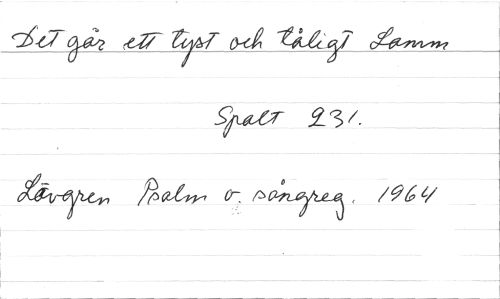 Det går ett tyst och tåligt Lamm
Spalt 231.
Lövgren Psalm o. sångreg. 1964